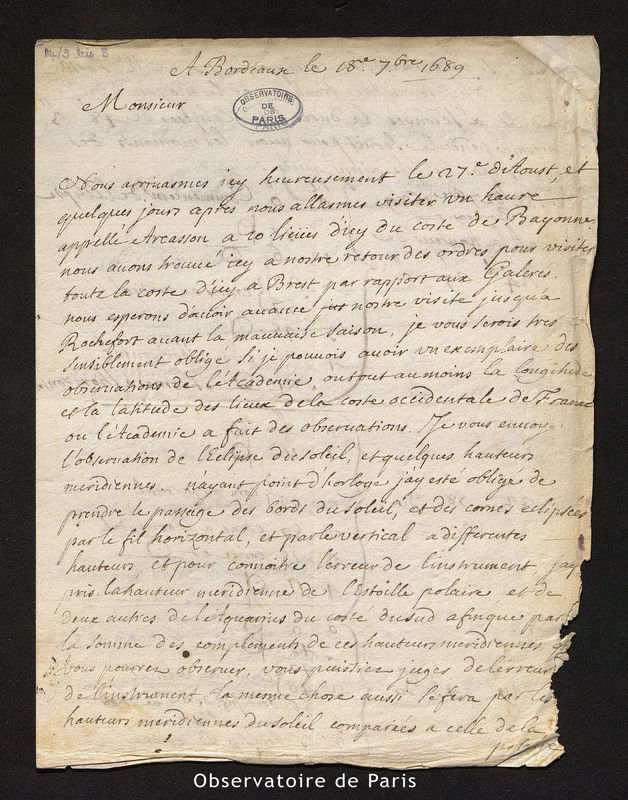 A Bordeaux le 18.e 7.bre 1689
Monsieur
OBSERVATOIRE
DE
PARIS
Nous arrivasmes icy heureusement le 27.e d'Aoust, et
quelques jours apres nous allasmes visiter un havre
appellé Arcasson a 10 lieües d'icy du costé de Bayonne.
nous avons trouvé icy a nostre retour des ordres pour visiter
toute la coste d'icy a Brest par rapport aux Galeres.
nous esperons d'avoir avancé nostre visite jusqu'a
Rochefort avant la mauvaise saison, je vous serois tres
sensiblement obligé si je pouvois avoir un exemplaire des
observations de l'Academie, ou tout au moins la longitude
et la latitude des lieux de la coste occidentale de France
ou l'Academie a fait des observations. Je vous envoye
l'observation de l'Eclipse du soleil, et quelques hauteurs
meridiennes. n'ayant point d'horloge j'ay esté obligé de
prendre le passage des bords du soleil, et des cornes eclipsées
par le fil horizontal, et par le vertical a differentes
hauteurs, et pour connoitre l'erreur de l'instrument j'ay
pris la hauteur meridienne de l'Estoille polaire et de
deux autres de l'Aquarius du costé du sud afin que par
la somme des complements de ces hauteurs meridiennes
vous pourrez observer, vous puissiez juger de l'erreur
de l'instrument la mesme chose aussi se fera par les
hauteurs meridiennes du soleil comparées a celle de la
polaire
Observatoire de Paris